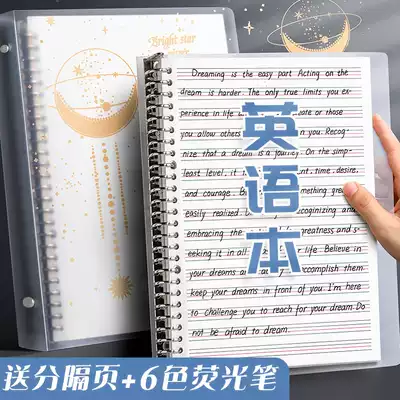 Bright star
英语本
Dreaming is the easy part Acting on the
dream is harder. The only true limits you ex-
perience in life are those or those
you allow others you. Recog-
nize that a dream is a journey. On the simp-
least level, it is time, desire,
and courage. B something great
easily realized. D recoginizing and
embracing the greatness and s-
eeking it in all life. Believe in
your dreams and accomplish them.
keep your dreams in front of you. I'm here
to challenge you to reach for your dream. Do
not be afraid to dream.
送分隔页+6色荧光笔